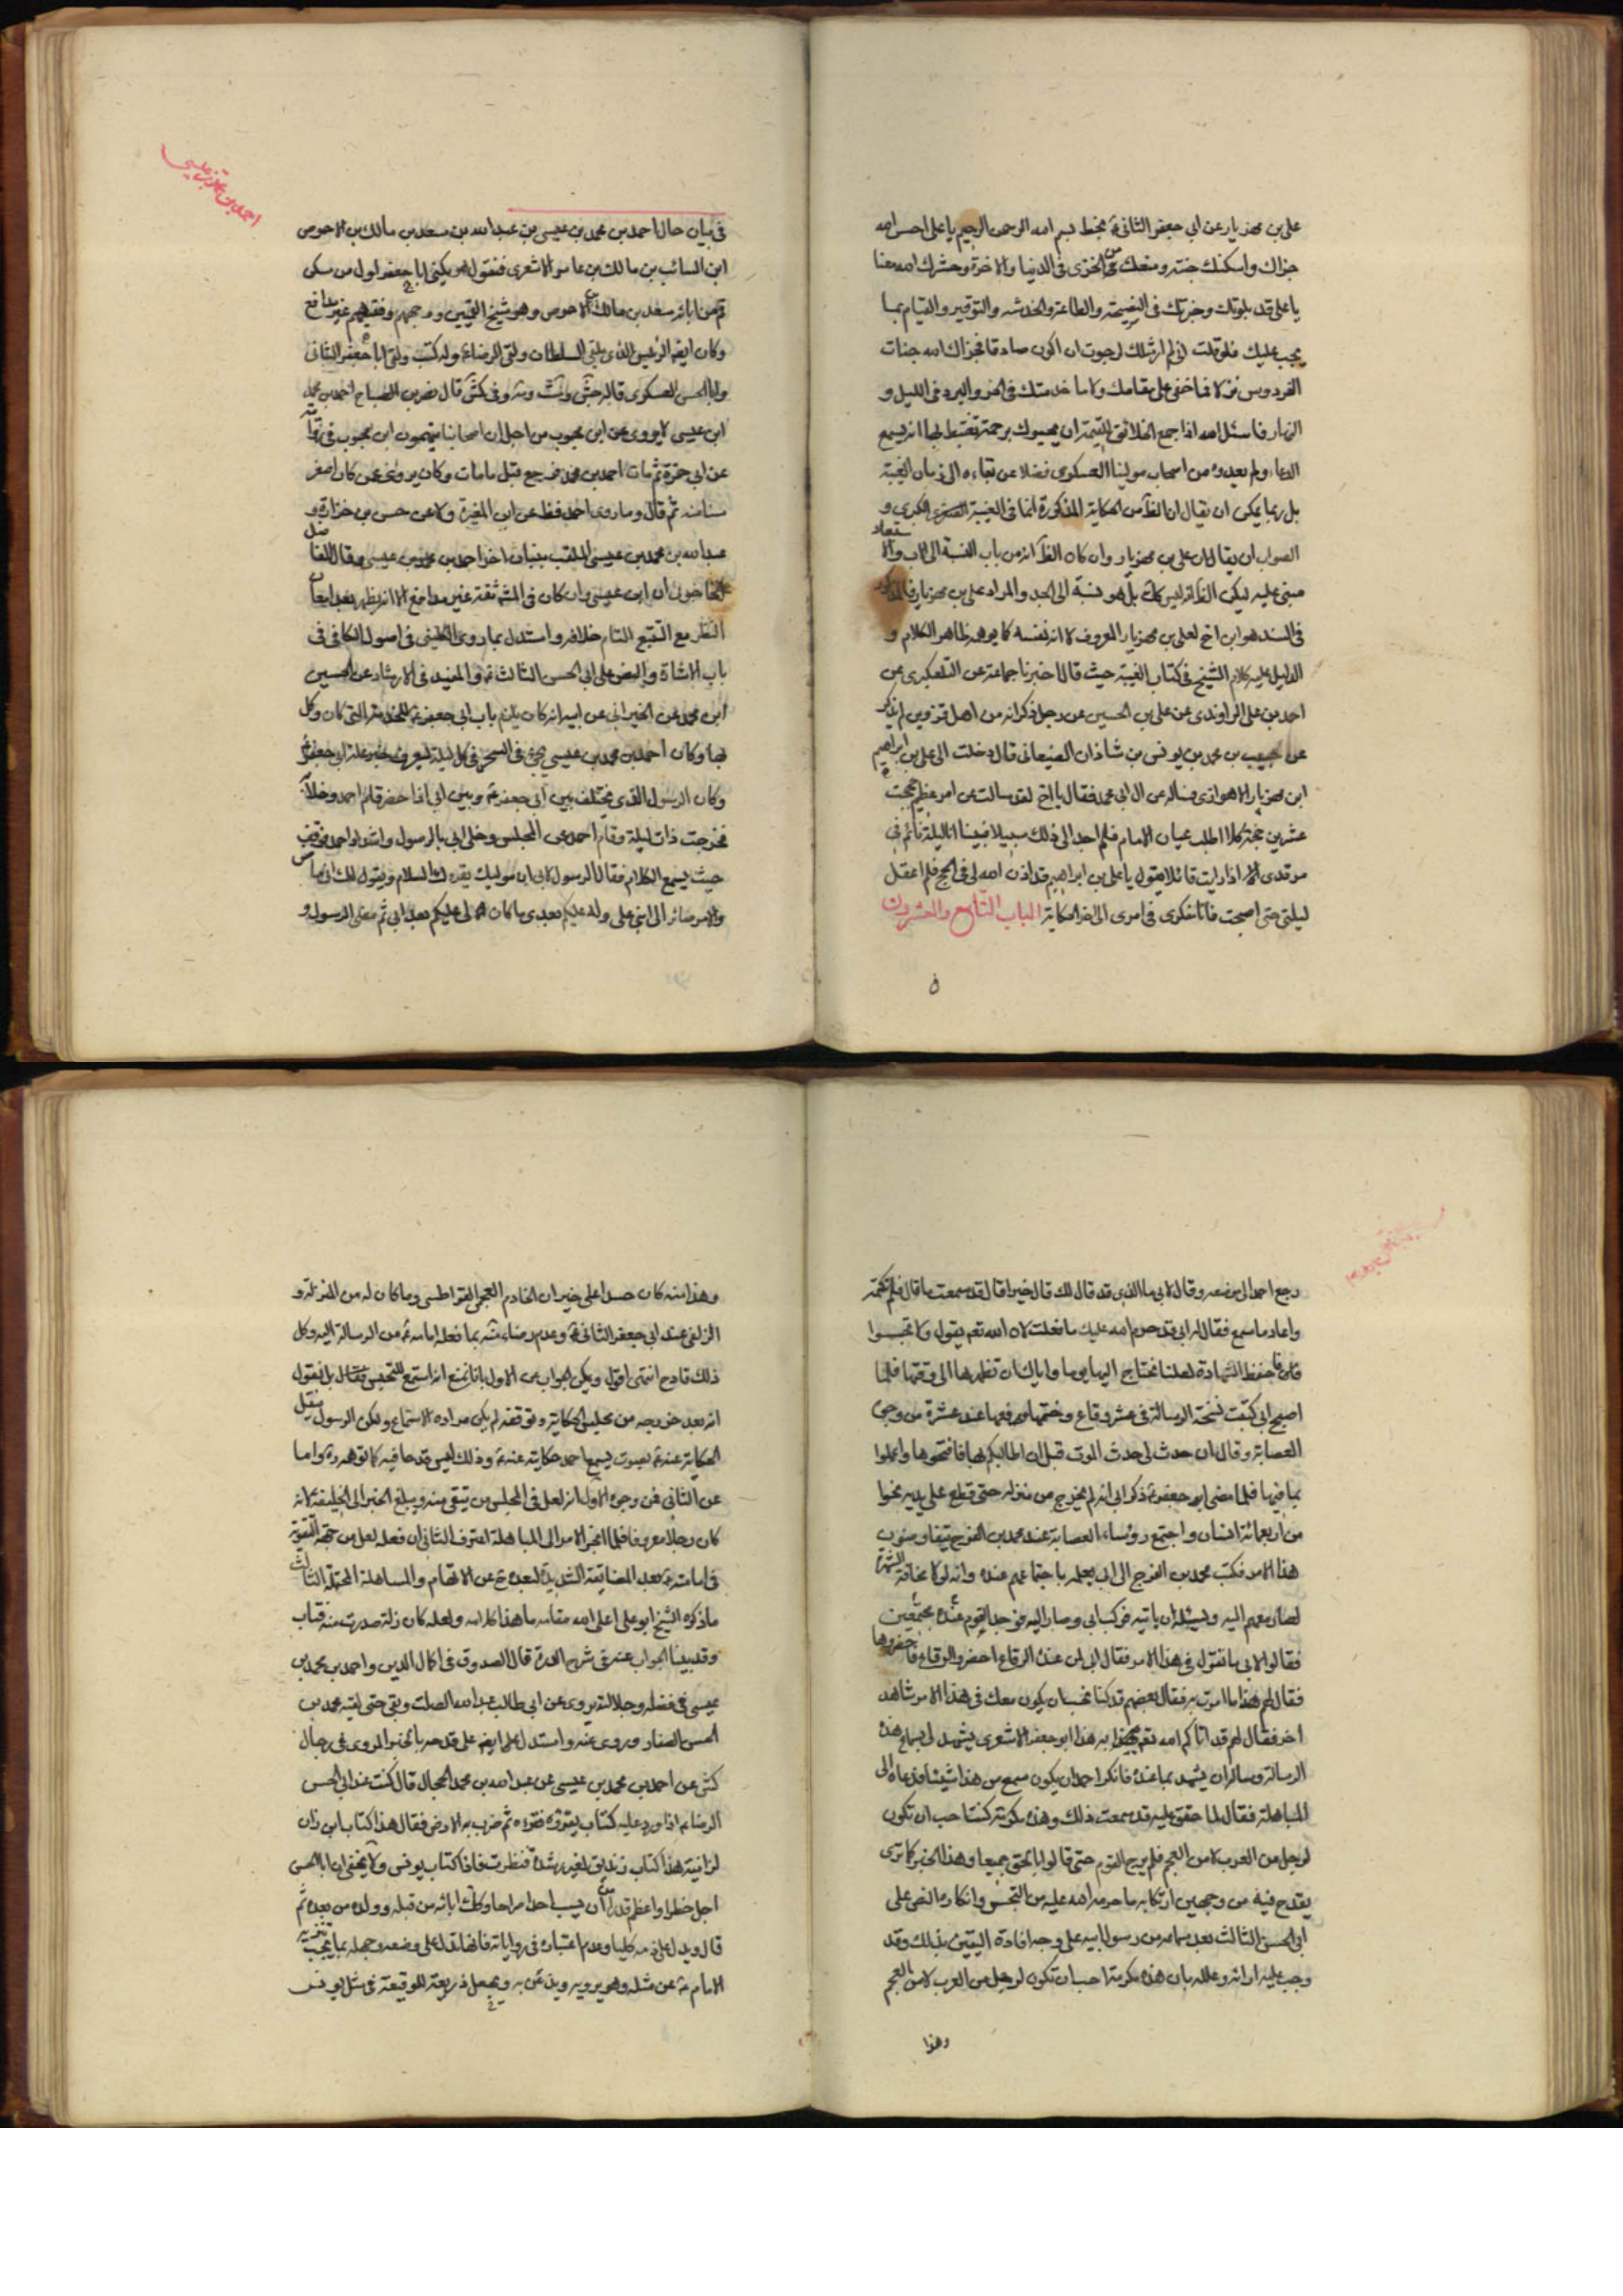 علي بن مهزيار عن ابي جعفر الثاني ع بخط بسم الله الرحمن الرحيم يا علي احسن الله
جزاك واسكنك جنته ومنعك من الخزي في الدنيا والاخرة وحشرك الله معنا
يا علي قد بلوتك وخبرتك في النصيحة والطاعة والخدمة والتوقير والقيام بما
يجب عليك فلو قلت اني لم ار مثلك لرجوت ان اكون صادقا فجزاك الله جنات
الفردوس نزلا فما خفي علي مقامك ولا ما خدمتك في الحر والبرد في الليل و
النهار فاسئل الله اذا جمع الخلائق للقيمة ان يحبوك برحمة تغتبط بها انه سميع
الدعاء ولم يعدوه من اصحاب مولينا العسكري فضلا عن بقاءه الى زمان الغيبة
بل ربما يمكن ان يقال ان الظ من الحكاية المذكورة انما في الغيبة الكبرى و
الصواب ان يقال ان علي بن مهزيار وان كان الظ انه من باب النسبة الى الاب والا
مبني عليه لكن الظ انه ليس كك بل هو نسبة الى الجد والمراد علي بن مهزيار فالمذكور
في السند هو ابن اخ لعلي بن مهزيار المعروف لا انه نفسه كما يوهمه ظاهر الكلام و
الدليل عليه كلام الشيخ في كتاب الغيبة حيث قال اخبرنا جماعة عن التلعكبري عن
احمد بن علي الراوندي عن علي بن الحسين عن رجل ذكر انه من اهل قزوين لم يذكر
عن حبيب بن محمد بن يونس بن شاذان الصنعاني قال دخلت الى علي بن ابراهيم
ابن مهزيار الاهوازي فسالته عن ال ابي محمد فقال يا اخ لقد سالت عن امر عظيم حججت
عشرين حجة كلا اطلب عيان الامام فلم اجد الى ذلك سبيلا فبينا انا ليلة نائم في
مرقدي اذ رايت قائلا يقول يا علي بن ابراهيم قد اذن الله لي في الحج فلم اعقل
ليلتي حتى اصبحت فانا متفكر في امري الى اخر الحكاية الباب التاسع والعشرون
في
احمد بن محمد بن عيسى
في بيان حال احمد بن محمد بن عيسى بن عبدالله بن سعد بن مالك بن الاحوص
ابن السائب بن مالك بن عامر الاشعري فنقول هو يكنى ابا جعفر اول من سكن
قم من ابائه سعد بن مالك بن الاحوص وهو شيخ القميين ووجههم وفقيههم غير مدافع
وكان ايضا الرئيس الذي يلقى السلطان ولقى الرضا ع وله كتب ولقى ابا جعفر الثاني
وابا الحسن العسكري قاله وفي كش قال نصر بن الصباح احمد بن محمد
ابن عيسى لا يروي عن ابن محبوب من اجل ان اصحابنا يتهمون ابن محبوب في
عن ابي حمزة ثم مات احمد بن محمد فرجع قبل ما مات وكان يروي عمن كان اصغر
سنا منه ثم قال وما روى احمد قط عن ابن المغيرة ولا عن حسن بن خرزاد و
عبدالله بن محمد بن عيسى الملقب ببنان اخو احمد بن محمد بن عيسى وقال الفاضل
ان ابن عيسى وان كان في المش ثقة غير مدافع الا انه يظهر بعد امعان
النظر مع التتبع التام خلافه واستدل بما روى الكليني في اصول الكافي في
باب الاشارة والنص على ابي الحسن الثالث ع والمفيد في الارشاد عن الحسين
ابن محمد عن الخيراني عن ابيه انه كان يلزم باب ابي جعفر ع للخدمة التي كان وكل
بها وكان احمد بن محمد بن عيسى يجئ في السحر في كل ليلة ليعرف خبر علة ابي جعفر ع
وكان الرسول الذي يختلف بين ابي جعفر ع وبين ابي اذا حضر قام احمد وخلا
فخرجت ذات ليلة وقام احمد عن المجلس وخلى ابي بالرسول واستدار احمد فوقف
حيث يسمع الكلام فقال الرسول لابي ان مولاك يقرء ك السلام ويقول لك اني ماض
والامر صائر الى ابني علي وله عليكم بعدي ما كان لي عليكم بعد ابي ثم مضى الرسول و
رجع احمد الى موضعه وقال لابي ما الذي قد قال لك قال خيرا قال قد سمعت ما قال فلم تكتمه
واعاد ما سمع فقال له ابي قد حرم الله عليك ما فعلت لان الله تعم يقول ولا تجسسوا
فاحفظ الشهادة لعلنا نحتاج اليها يوما واياك ان تظهرها الى وقتها فلما
اصبح ابي كتب نسخة الرسالة في عشر رقاع وختمها ودفعها عند عشرة من وجوه
العصابة وقال ان حدث لي حدث الموت قبل ان اطالبكم بها فافتحوها واعملوا
بما فيها فلما مضى ابو جعفر ع ذكر ابي انه لم يخرج من منزله حتى قطع على يديه نحوا
من اربعمائة انسان واجتمع رؤساء العصابة عند محمد بن الفرج يتفاوضون
هذا الامر فكتب محمد بن الفرج الى ابي يعلمه باجتماعهم عنده وانه لولا مخافة الشهرة
لصار معهم اليه ويسئله ان ياتيه فركب ابي وصار اليه فوجد القوم عنده مجتمعين
فقالوا لابي ما تقول في هذا الامر فقال ابي لمن عنده الرقاع احضروا الرقاع فاحضروها
فقال لهم هذا ما امرت به فقال بعضهم قد كنا نحب ان يكون معك في هذا الامر شاهد
اخر فقال لهم قد اتاكم الله تعم به هذا ابو جعفر الاشعري يشهد لي بسماع هذه
الرسالة وساله ان يشهد بما عنده فانكر احمد ان يكون سمع من هذا شيئا فدعاه ابي الى
المباهلة فقال لما حقق عليه قد سمعت ذلك وهذه مكرمة كنت احب ان تكون
لرجل من العرب لا من العجم فلم يبرح القوم حتى قالوا بالحق جميعا وهذا الخبر كما ترى
يقدح فيه من وجهين ارتكابه ما حرمه الله عليه من التجسس وانكاره النص على
ابي الحسن الثالث بعد سماعه من رسول ابيه على وجه افادة اليقين بذلك وقد
وجب عليه اداؤه وعلله بان هذه مكرمة احب ان تكون لرجل من العرب لا من العجم
وهذا
وهذا منه كان حسدا على خيران الخادم العجمي القراطسي وما كان له من المنزلة و
الزلفى عند ابي جعفر الثاني ع وعدم رضاء منه بما فعله امامه ع من الرسالة اليه وكل
ذلك قادح انتهى اقول ويمكن الجواب عن الاول بانا نمنع انه استمع للتجسس بل نقول
انه بعد خروجه من مجلس الحكاية وتوقفه لم يكن مراده الاستماع ولكن الرسول نقل
الحكاية عنه ع بصوت يسمع احمد حكايته عنه ع وذلك ليس قدحا فيه كما توهمه واما
عن الثاني فمن وجوه الاول انه لعل في المجلس من يتقى منه ويبلغ الخبر الى الخليفة لانه
كان رجلا معروفا فلما انجر الامر الى المباهلة اعترف الثاني ان فعله لعل من جهة التقوية
في امامته ع بعد المضايقة الشديدة لبعده عن الاتهام والمساهلة المحتملة الثالث
ما ذكره الشيخ ابو علي اعلى الله مقامه ما هذا كلامه ولعله كان زلة صدرت منه فتاب
وقد بينا الجواب عنه في شرح الدرة قال الصدوق في اكمال الدين واحمد بن محمد بن
عيسى في فضله وجلالته يروي عن ابي طالب عبد الله الصلت وبقي حتى لقيه محمد بن
الحسن الصفار وروى عنه واستدل على ايضا على قدحه بالخبر المروي في رجال
كش عن احمد بن محمد بن عيسى عن عبد الله بن محمد الحجال قال كنت عند ابي الحسن
الرضا ع اذا ورد عليه كتاب يقرؤه فقرءه ثم ضرب به الارض فقال هذا كتاب ابن زان
لزانية هذا كتاب زنديق لغير رشدة فنظرت فاذا كتاب يونس ولا يخفى ان ابا الحسن
اجل خطرا واعظم قدرا من ان يسب احدا صراحا وكك ابائه من قبله وولده من بعده ثم
قال ويدل على ذمه كليا وعدم اعتباره في رواياته فانها تدل على وضعه وجهله بما يجب تنزيه
الامام ع عن مثله وهو يرويه ويذعن به ويجعل ذريعة للوقيعة في مثل يونس